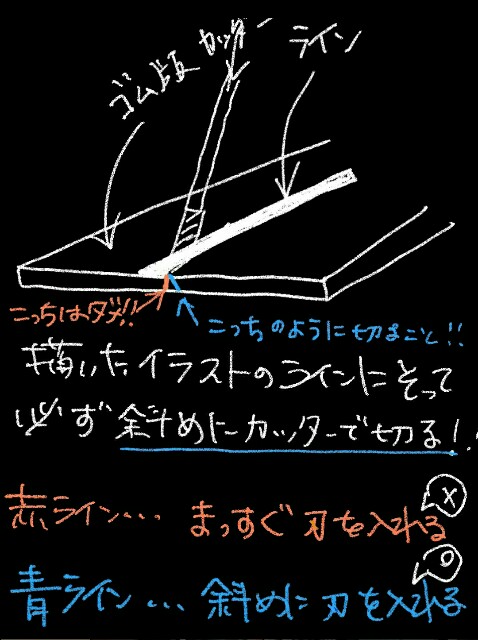 ゴム版
カッター
ライン
こっちはダメ!!
こっちのように切るまごと!!
描いたイラストのラインにそって
必ず斜めにカッターで切る!!
赤ライン... まっすぐ刃を入れる
×
青ライン... 斜めに刃を入れる
○